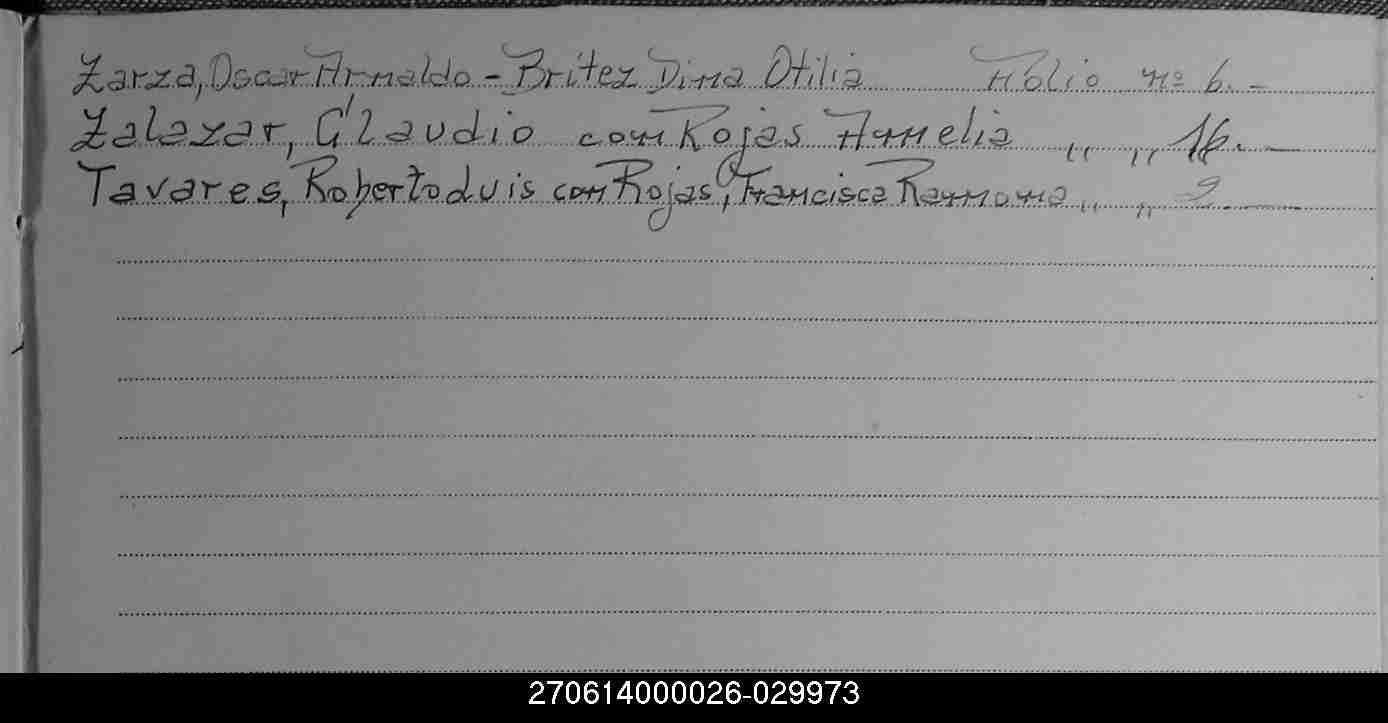 Zarza, Oscar Arnaldo - Britez Dina Otilia Folio nº 6. -
Zalazar, Claudio con Rojas Amelia " " 16. —
Tavares, Roberto Luis con Rojas, Francisca Ramona " " 9. —
270614000026-029973